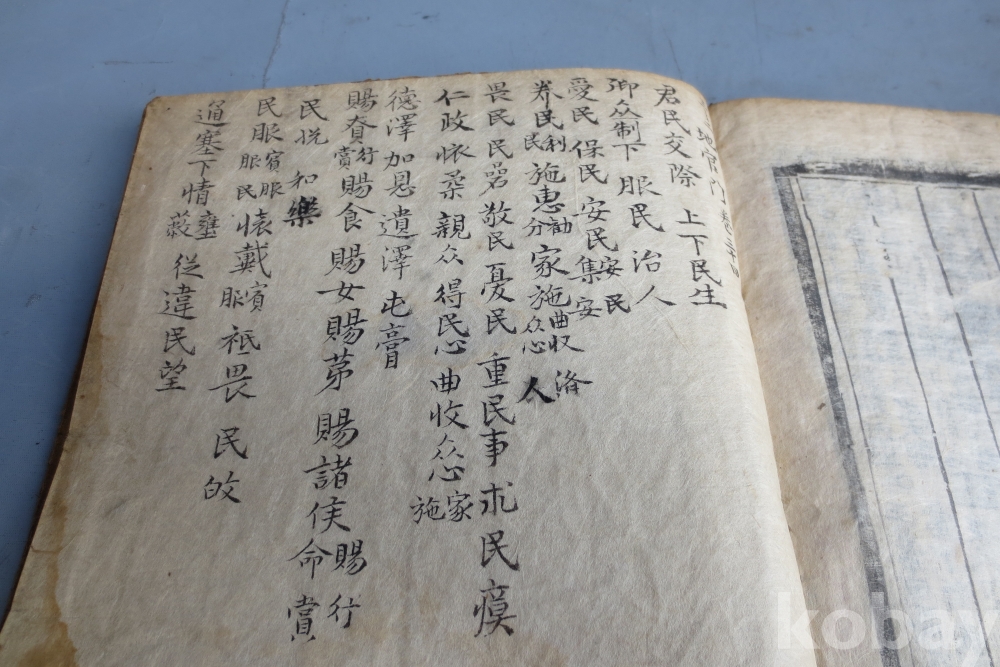 地官門 卷三十四
君民交際 上下民生
御众制下 服民 治人
愛民 保民 安民 集安 安民
养民 利民 施惠 勸分 家施 曲收众心 済人
畏民 民碞 敬民 憂民 重民事 求民瘼
仁政 懷柔 親众 得民心 曲收众心 家施
德澤 加恩 遺澤 屯膏
賜賚 行賞 賜食 賜女 賜茅 賜諸侯命 賜行賞
民悦 和樂
民服 賓服 服民 懷戴 賓服 祗畏 民攽
遏塞下情 壅蔽 從違民望
kobay